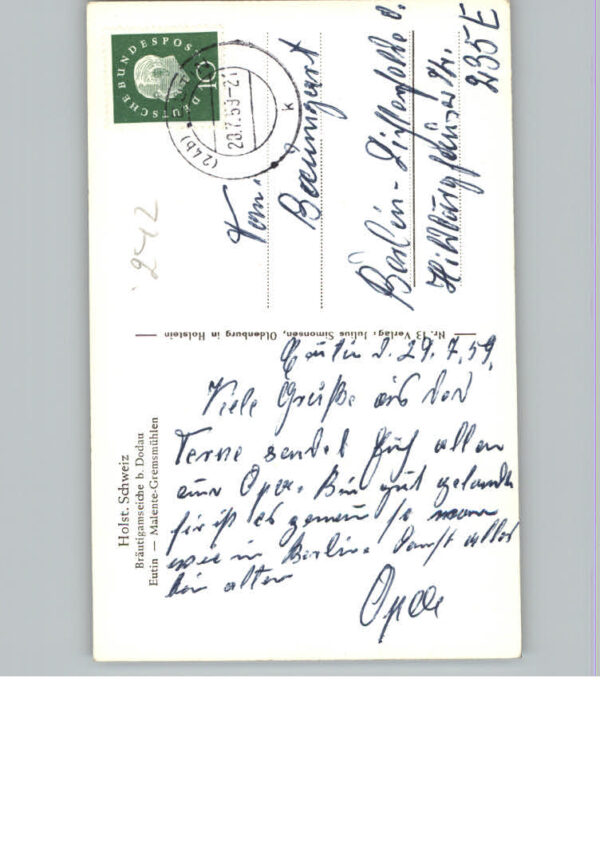 DEUTSCHE BUNDESPOST
10
(24b)
28.7.59-21
k
Fam.
Baumgart
Berlin-Lichterfelde
Hildburghauser
235E
2542
Nr. 13 Verlag: Julius Simonsen, Oldenburg in Holstein
Holst. Schweiz
Bräutigamseiche b. Dodau
Eutin — Malente-Gremsmühlen
Eutin d. 29.7.59.
Viele Grüße aus der
Ferne sendet Euch allen
euer Opa. Bin gut gelandet
hier ist es genau so warm
wie in Berlin. Sonst alles
beim alten
Opa